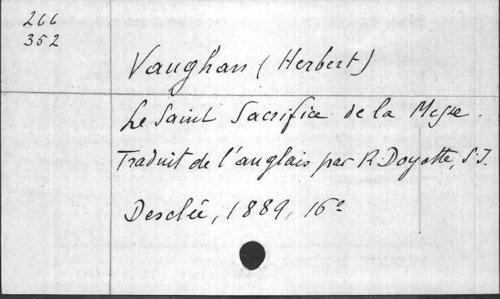 266
352
Vaughan (Herbert)
Le Saint Sacrifice de la Messe.
Traduit de l'anglais par R. Doyotte, S.J.
Desclée, 1889, 16°